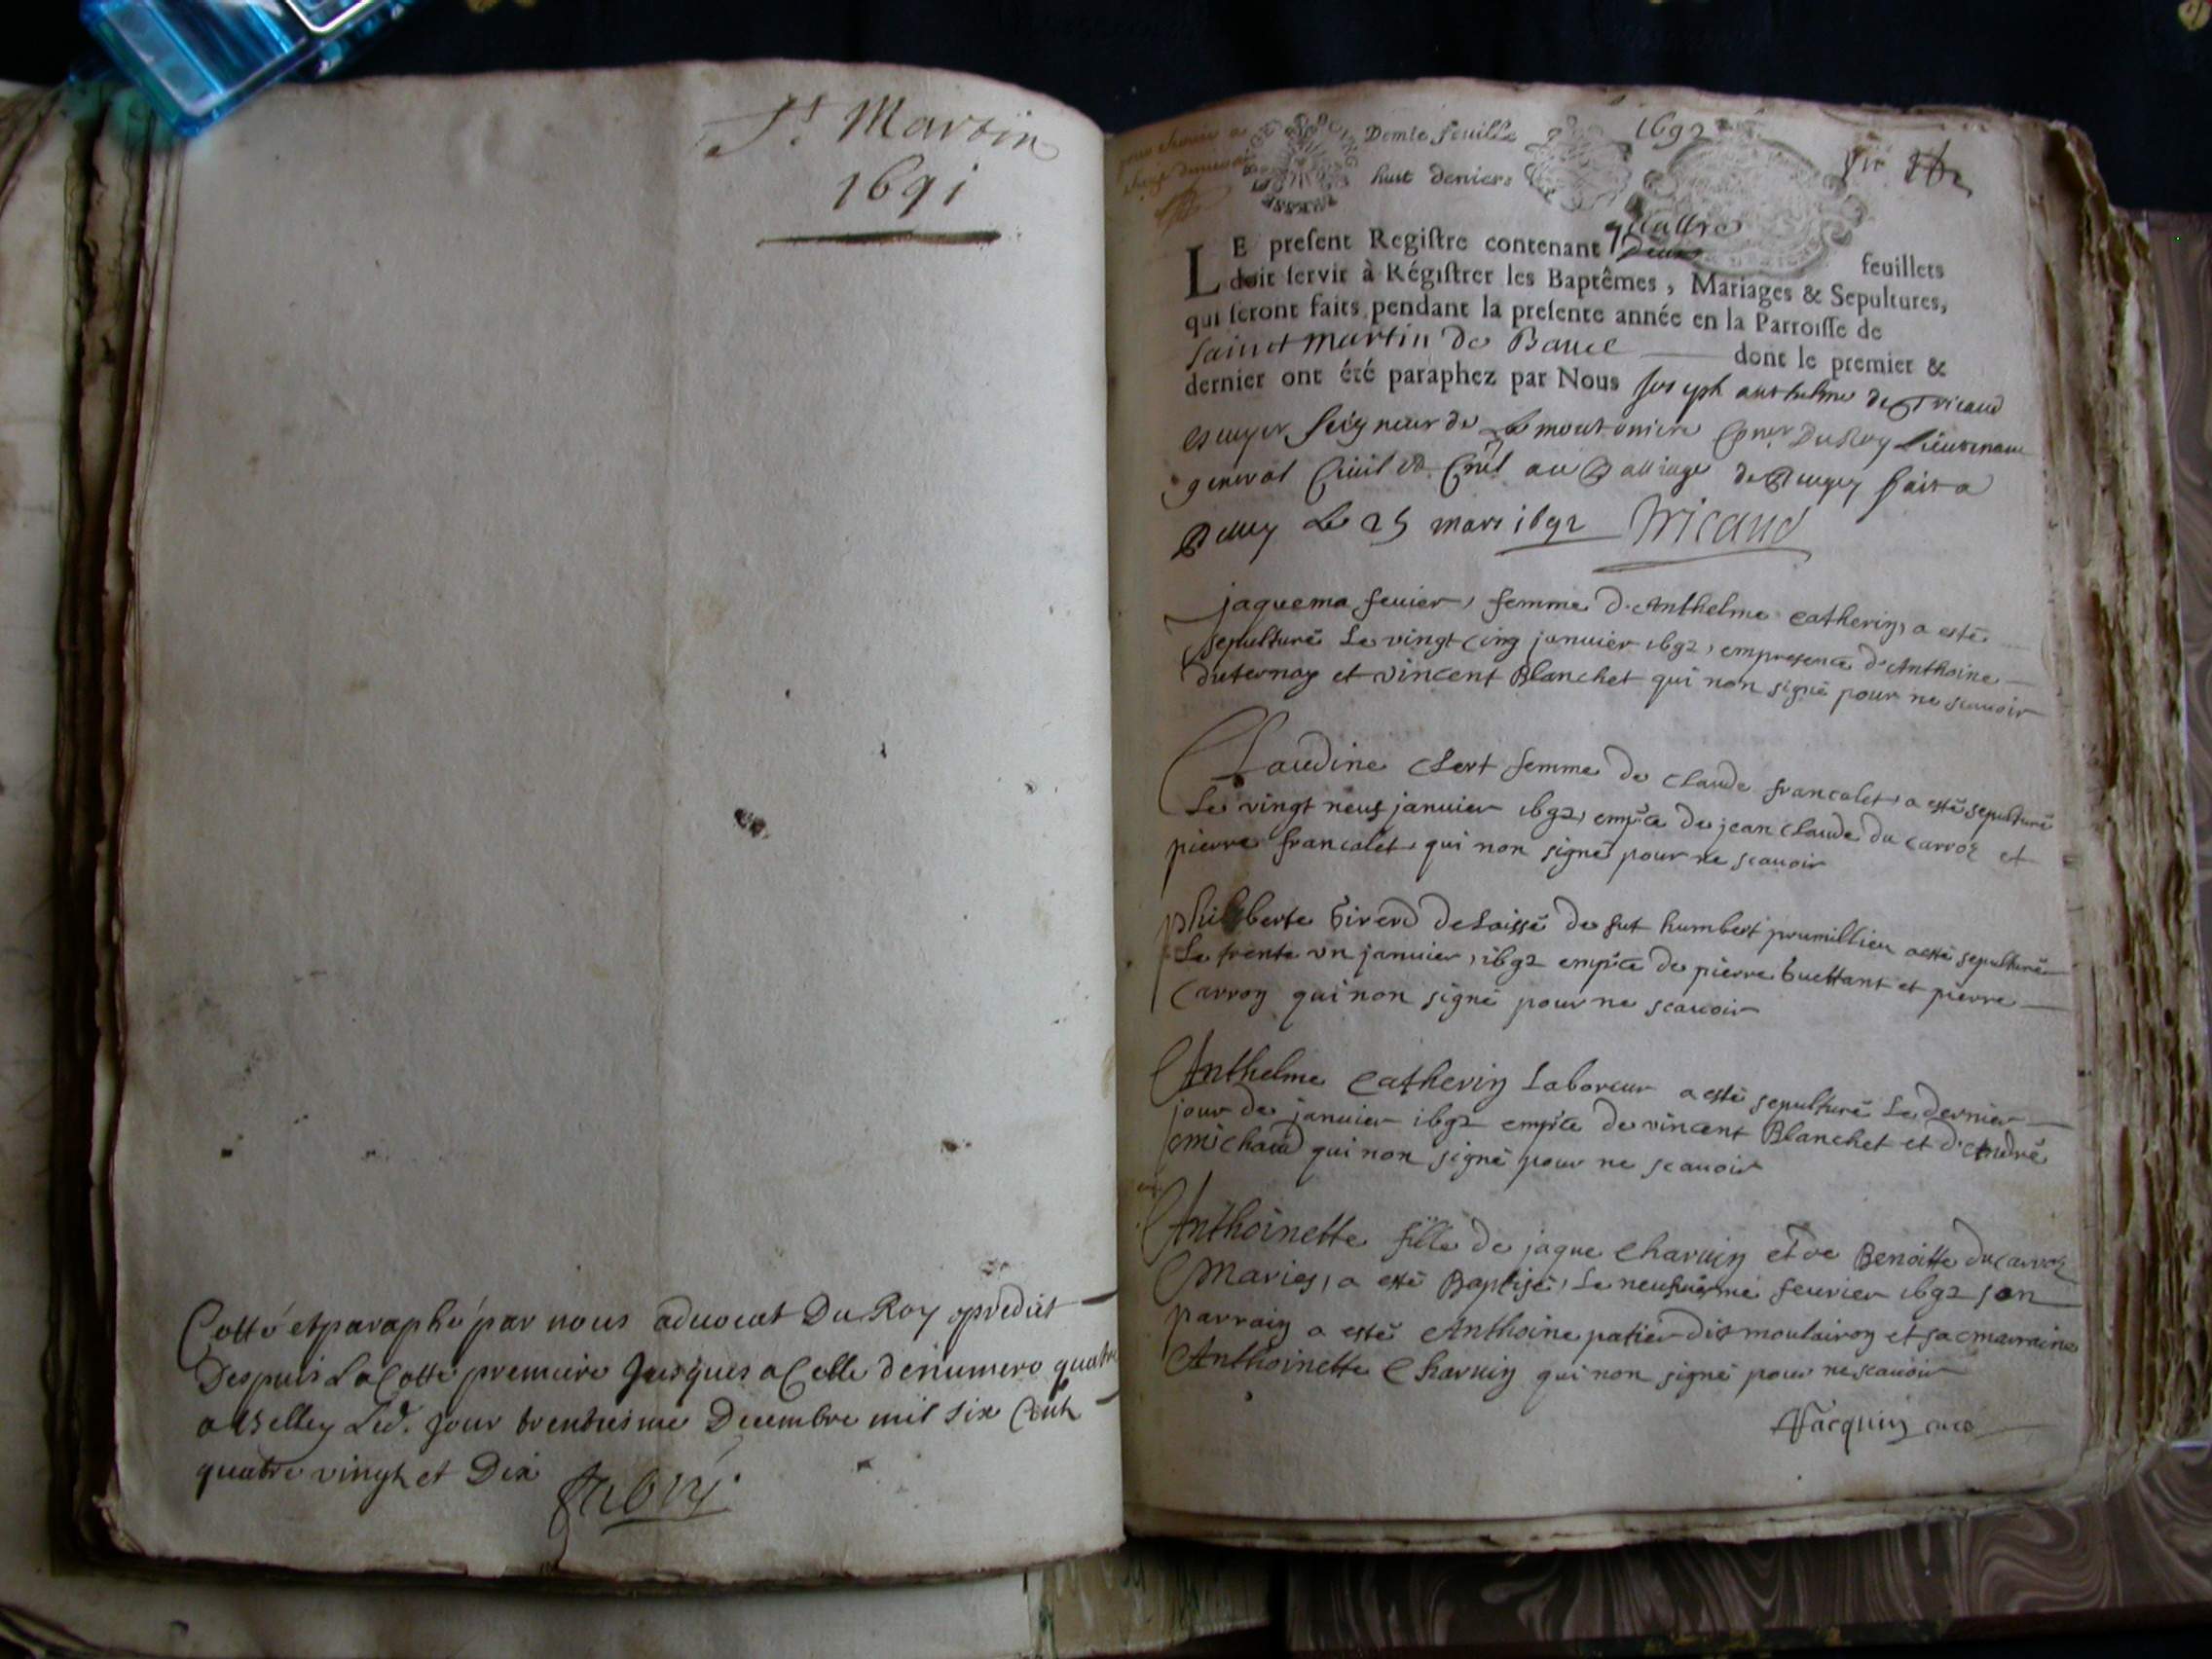 St Martin
1691
Cotté et paraphé par nous advocat Du Roy predict
Despuis La Cotte premiere Jusques a Celle denumero quatre
a Belley Led. Jour trentiesme Decembre mil six Cent
quatre vingt et Dix
1692
Demie feuille
huit deniers
quattre
LE present Registre contenant deux feuillets
doit servir à Régistrer les Baptêmes, Mariages & Sepultures,
qui seront faits pendant la presente année en la Parroisse de
Sainct Martin De Bavel dont le premier &
dernier ont été paraphez par Nous Joseph anthelme de Tricaud
escuyer Seigneur de La moutoniere Coner Du Roy Lieutenant
general Civil et Cril au Balliage de Bugey fait a
Belley Le 25 mars 1692 Tricaud
Jaquema fevier, femme d'Anthelme Catherin, a esté
sepulturé Le vingt Cinq janvier 1692, empresence d'Anthoine
duternoy et vincent Blanchet qui non signé pour ne scavoir
Claudine Clert femme de Claude francalet, a esté sepulturé
Le vingt neuf janvier 1692, empce de jean Claude du Carroz et
pierre francalet qui non signé pour ne scavoir
philiberte Girerd delaissé de fut humbert prumillieu a esté sepulturé
Le trente un janvier, 1692 empce de pierre Guettant et pierre
Carron qui non signé pour ne scavoir
Anthelme Catherin Laboreur a esté sepulturé Le dernier
jour de janvier 1692 empce de vincent Blanchet et d'André
michaud qui non signé pour ne scavoir
Anthoinette fille de jaque Charvin et de Benoitte du Carroz
Maries, a esté Baptisé, Le neufviesme fevrier 1692 son
parrain a esté Anthoine patier dit moulairon et sa marraine
Anthoinette Charvin qui non signé pour ne scavoir
Jacquin curé